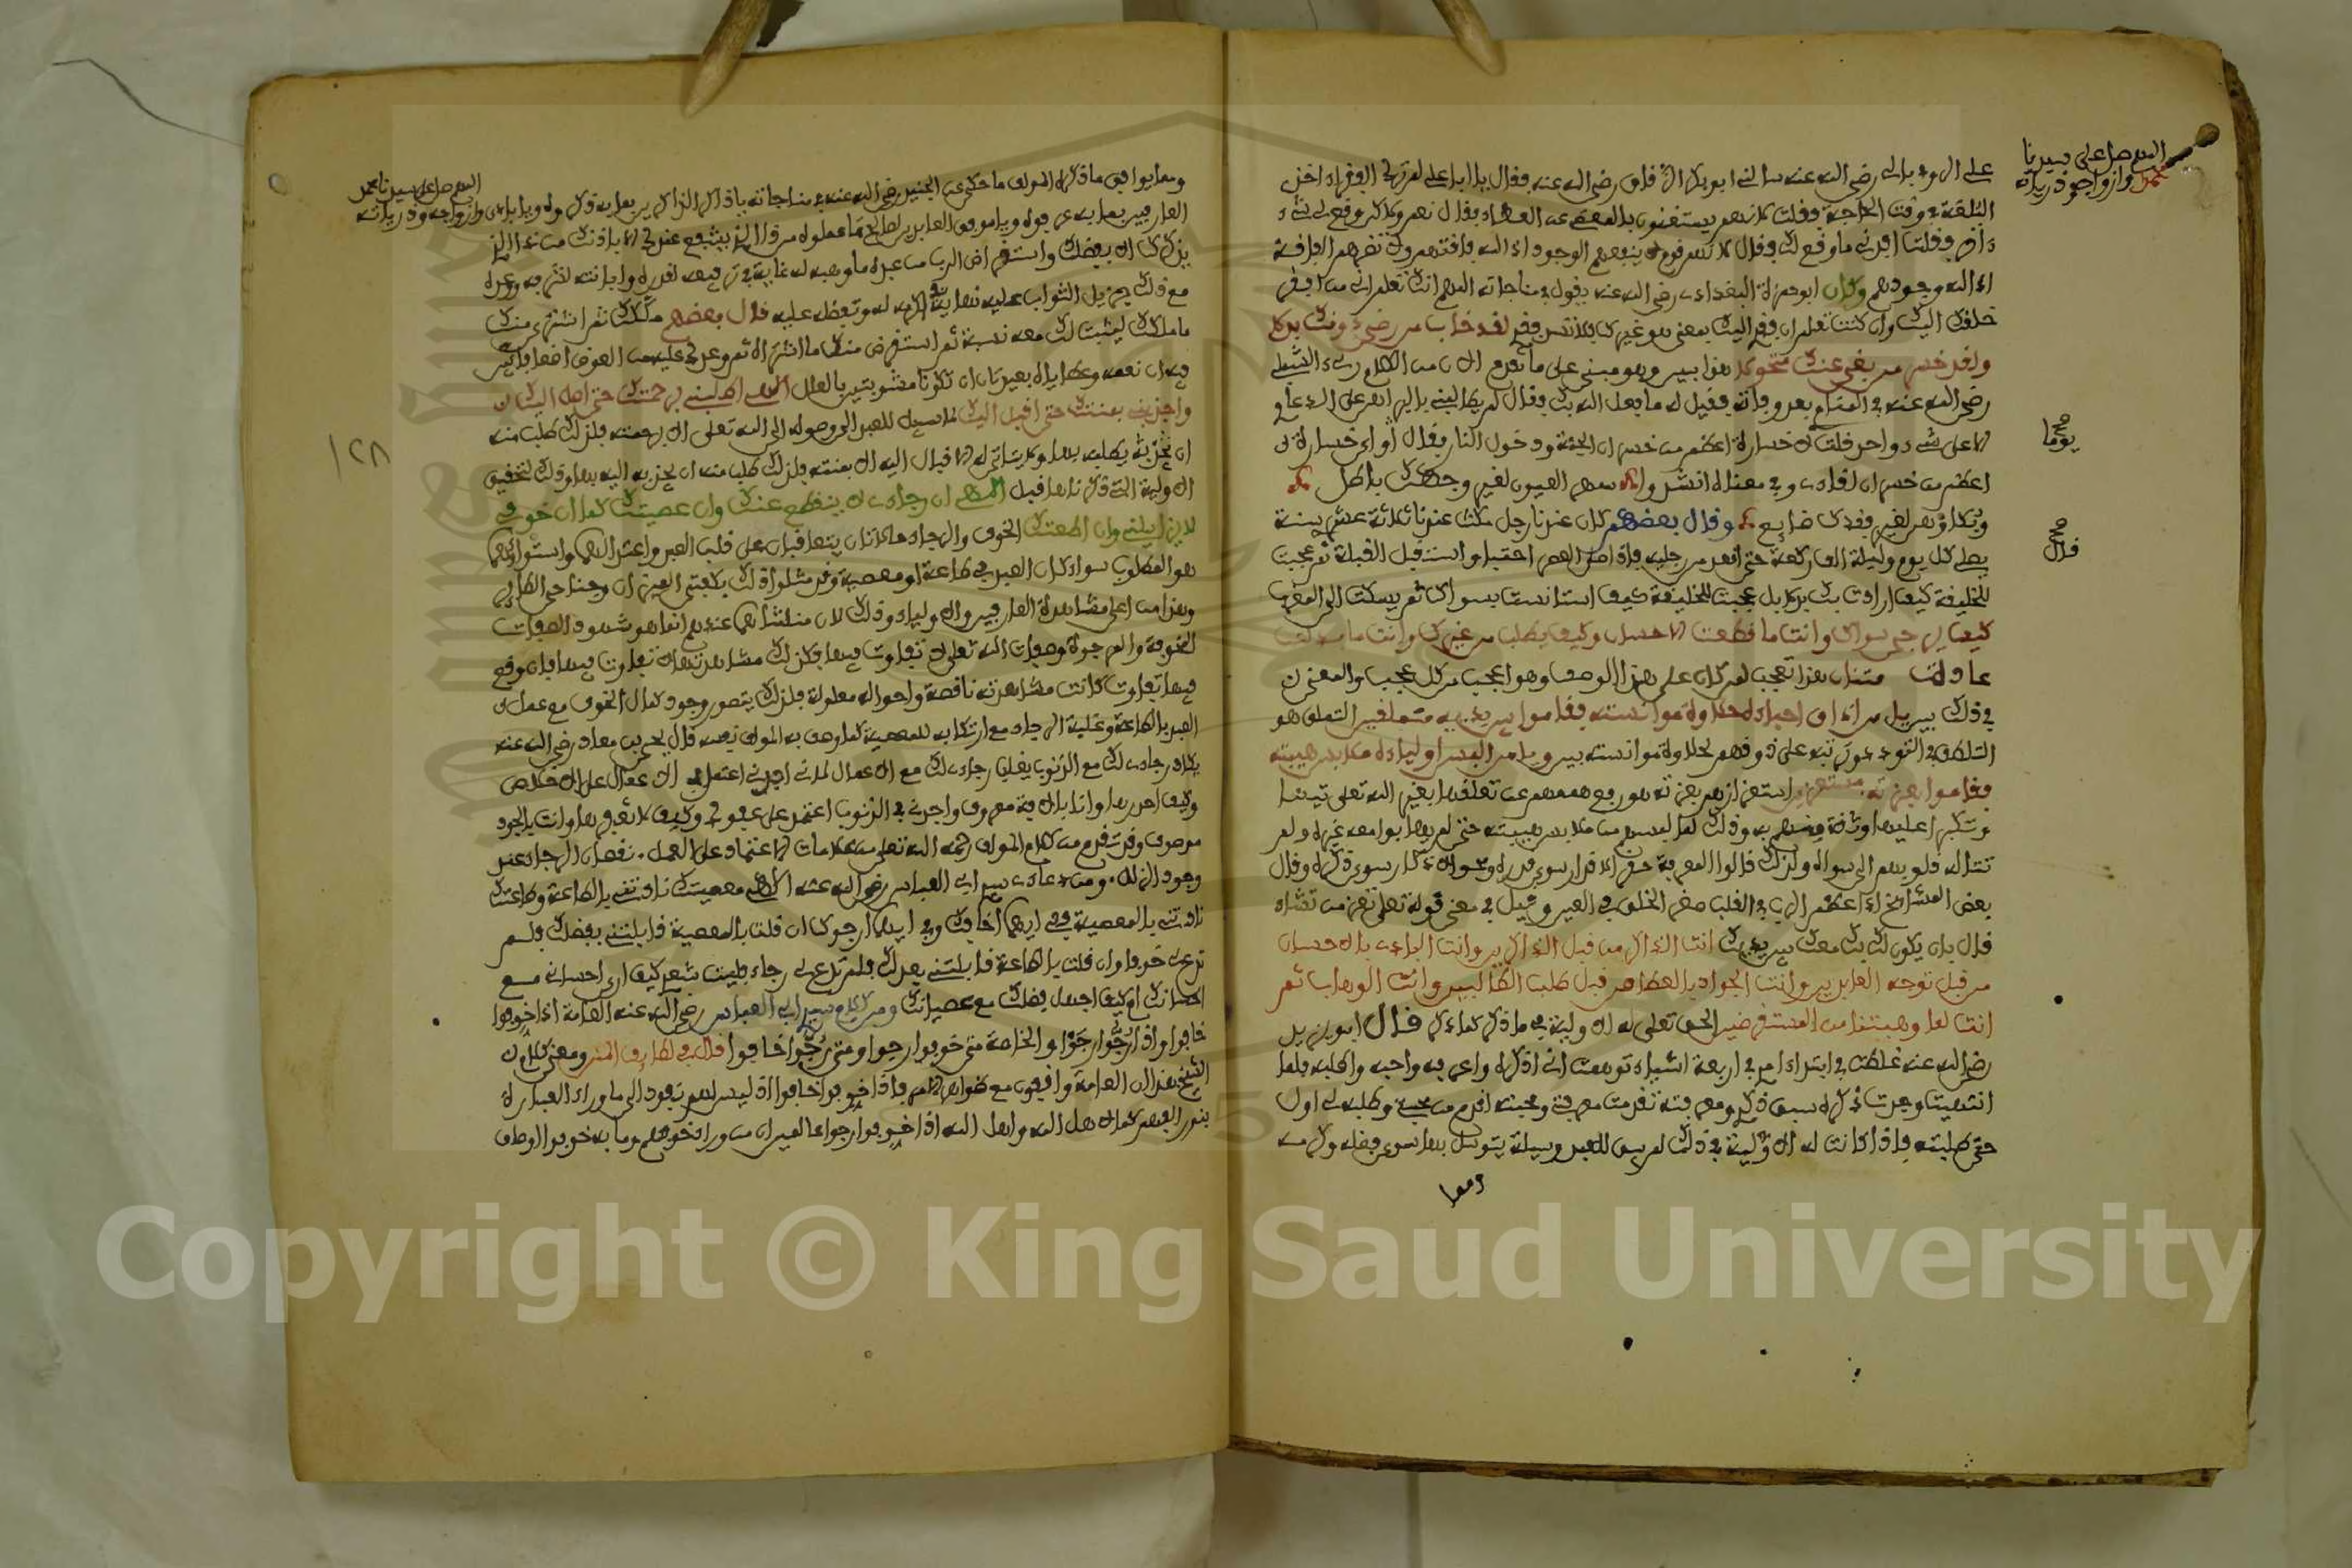 اللهم صل على سيدنا
محمد وأزواجه وذريته
علي الروذباري رضي الله عنه سألني ابو بكر الزقاق رضي الله عنه فقال يا ابا علي لم ترك الفقراء اخذ
البلغة في وقت الحاجة فقلت لانهم يستغنون بالمعطي عن العطاء فقال نعم ولكن وقع لي شيء
ءاخر فقلت افدني ما وقع لك فقال لانهم قوم لا ينفعهم الوجود اذ الله فاقتهم ولا تضرهم الفاقة
اذ الله وجودهم وكان ابو حمزة البغدادي رضي الله عنه يقول في مناجاته اللهم انك تعلم اني من افقر
خلقك اليك وان كنت تعلم ان فقري اليك بمعنى هو غيرك فلا تسد فقري لقد خاب من رضي دونك بدلا
ولقد خسر من بغى عنك متحولا هذا بين وهو مبني على ما تقدم الان من الكلام رءي الشبلي
رضي الله عنه في المنام بعد وفاته فقيل له ما فعل الله بك فقال لم يطالبني بالبراهين على الدعاوي
الا على شيء واحد قلت لا خسارة اعظم من خسران الجنة ودخول النار فقال أي خسارة
يوما
اعظم من خسران لقاءي وفي معناه انشدوا سهر العيون لغير وجهك باطل
وبكاؤهن لغير فقدك ضايع وقال بعضهم كان عندنا رجل مكث عندنا ثلاثة عشر سنة
يصلي كل يوم وليلة الف ركعة حتى اقعد من رجليه فاذا صلى العصر احتبى واستقبل القبلة ثم عجبت
قال
للخليقة كيف ارادت بك بدلا بل عجبت للخليقة كيف استانست بسواك ثم يسكت الى المغرب
كيف يرجى سواك وانت ما قطعت الاحسان وكيف يطلب من غيرك وانت ما بدلت
عادة الامتنان هذا تعجب لمن كان على هذا الوصف وهو اعجب من كل عجب والمعنى
في ذلك بين يا من اذاق احباءه حلاوة موانسته فقاموا بين يديه متملقين التملق هو
التلطف في التودد نبه على ذوقهم لحلاوة موانسته بين ويا من البس اولياءه ملابس هيبته
فقاموا بعزته مستعزين استعزازهم بعزته هو رفع هممهم عن تعلقها بغير الله تعالى تيها
وتكبرا عليها وثقة به وذلك لما البسهم من ملابس هيبته حتى لم يهابوا معه غيره ولم
تتاله قلوبهم الى سواه ولذلك قالوا المعرفة حقر الاقدار سوى قدره ومحو الاذكار سوى ذكره وقال
بعض المشايخ اذا عظم الرب في القلب صغر الخلق في العين وقيل في معنى قوله تعالى تعز من تشاء
قال بان يكون لك بك معك بين يديك انت الذاكر من قبل الذاكرين وانت البادي بالاحسان
من قبل توجه العابدين وانت الجواد بالعطاء من قبل طلب الطالبين وانت الوهاب ثم
انت لما وهبتنا من المستقرضين الحق تعالى له الاولية في ما ذكر كما ذكر قال ابو يزيد
رضي الله عنه غلطت في ابتداء امري في اربعة اشياء توهمت اني اذكره واعرفه واحبه واطلبه فلما
انتهيت وجدت ذكره سبق ذكري ومعرفته تقدمت معرفتي ومحبته اقدم من محبتي وطلبه لي اول
حتى طلبته فاذا كانت له الاولية في ذلك لم يبق للعبد وسيلة يتوسل بها سوى فضله وكرمه
ومما
اللهم صل على سيدنا محمد
وازواجه وذريته
ومما يوافق ما ذكره المولف ما حكي عن الجنيد رضي الله عنه في مناجاته يا ذاكر الذاكرين
العارفين بما به عرفوه ويا موفق العابدين لصالح ما عملوه من ذا الذي يشفع عندك الا باذنك من ذا الذي
يذكرك الا بفضلك واستقراض الرب من عبده ما وهبه له غاية في ترفيعه لقدره
مع ذلك جزيل الثواب عليه نهاية كرمه له وتفضله عليه قال بعضهم ملكك ثم اشترى منك
ما ملكك ليثبت لك معه نسبة ثم استقرض منك ما اشتراه ثم وعدك عليه من العوض اضعافا
فيه ان نعمه وعطاياه بعيدتان ان تكونا مشوبتين بالعلل الهي اطلبني برحمتك حتى اصل اليك
واجذبني بمنتك حتى اقبل اليك لا سبيل للعبد الى وصوله الى الله تعالى الا برحمته فلذلك طلب منه
١٢٨
ان يطلبه بها ولا يتاتى له الاقبال اليه الا بمنته فلذلك طلب منه ان يجذبه اليه بها وذلك لتحقيق
الاولية التي ذكرناها قبل الهي ان رجاءي لا ينقطع عنك وان عصيتك كما ان خوفي
لا يزايلني وان اطعتك الخوف والرجاء حالتان يتعاقبان على قلب العبد واعتدالهما واستواؤهما
هو المطلوب سواء كان العبد في طاعة او معصية وقد مثلوا ذلك بكفتي الميزان وجناحي الطائر
وهذا من اعلى مشاهدة العارفين والاولياء وذلك لان منشاهما عندهم انما هو شهود الصفات
المخوفة والمرجوة وصفات الله تعالى لا تفاوت فيها فكذلك مشاهدتها لا تفاوت فيها فان وقع
فيها تفاوت كانت مشاهدته ناقصة واحواله معلولة فلذلك يتصور وجود كمال الخوف مع عمل
العبد بالطاعة وغلبة الرجاء مع ارتكابه للمعصية كما وصف به المولف نفسه قال يحيى بن معاذ رضي الله عنه
يكاد رجاءي لك مع الذنوب يغلب رجاءي لك مع الاعمال لاني اجدني اعتمد في الاعمال على الاخلاص
وكيف احرزها وانا بالافة معروف واجدني في الذنوب اعتمد على عفوك وكيف لا تغفرها وانت بالجود
موصوف وقد تقدم من كلام المولف رحمه الله تعالى من علامات الاعتماد على العمل نقصان الرجاء عند
وجود الزلل ومن دعاء سيدي ابي العباس رضي الله عنه الهي معصيتك نادتني بالطاعة وطاعتك
نادتني بالمعصية ففي ايهما اخافك وفي ايهما ارجوك ان قلت بالمعصية قابلتني بفضلك فلم
تدع لي خوفا وان قلت بالطاعة قابلتني بعدلك فلم تدع لي رجاء فليت شعري كيف ارى احساني مع
احسانك ام كيف اجهل فضلك مع عصيانك ومن كلام سيدي ابي العباس رضي الله عنه العامة اذا خوفوا
خافوا واذا رجوا رجوا والخاصة متى خوفوا رجوا ومتى رجوا خافوا قال في لطايف المنن ومعنى كلام
الشيخ هذا ان العامة واقفون مع ظواهر الامر فاذا خوفوا خافوا اذ ليس لهم نفوذ الى ما وراء العبارة
بنور الفهم كما لاهل الله واهل الله اذا خوفوا رجوا عالمين ان من وراء خوفهم وما به خوفوا اوصاف
Copyright © King Saud University